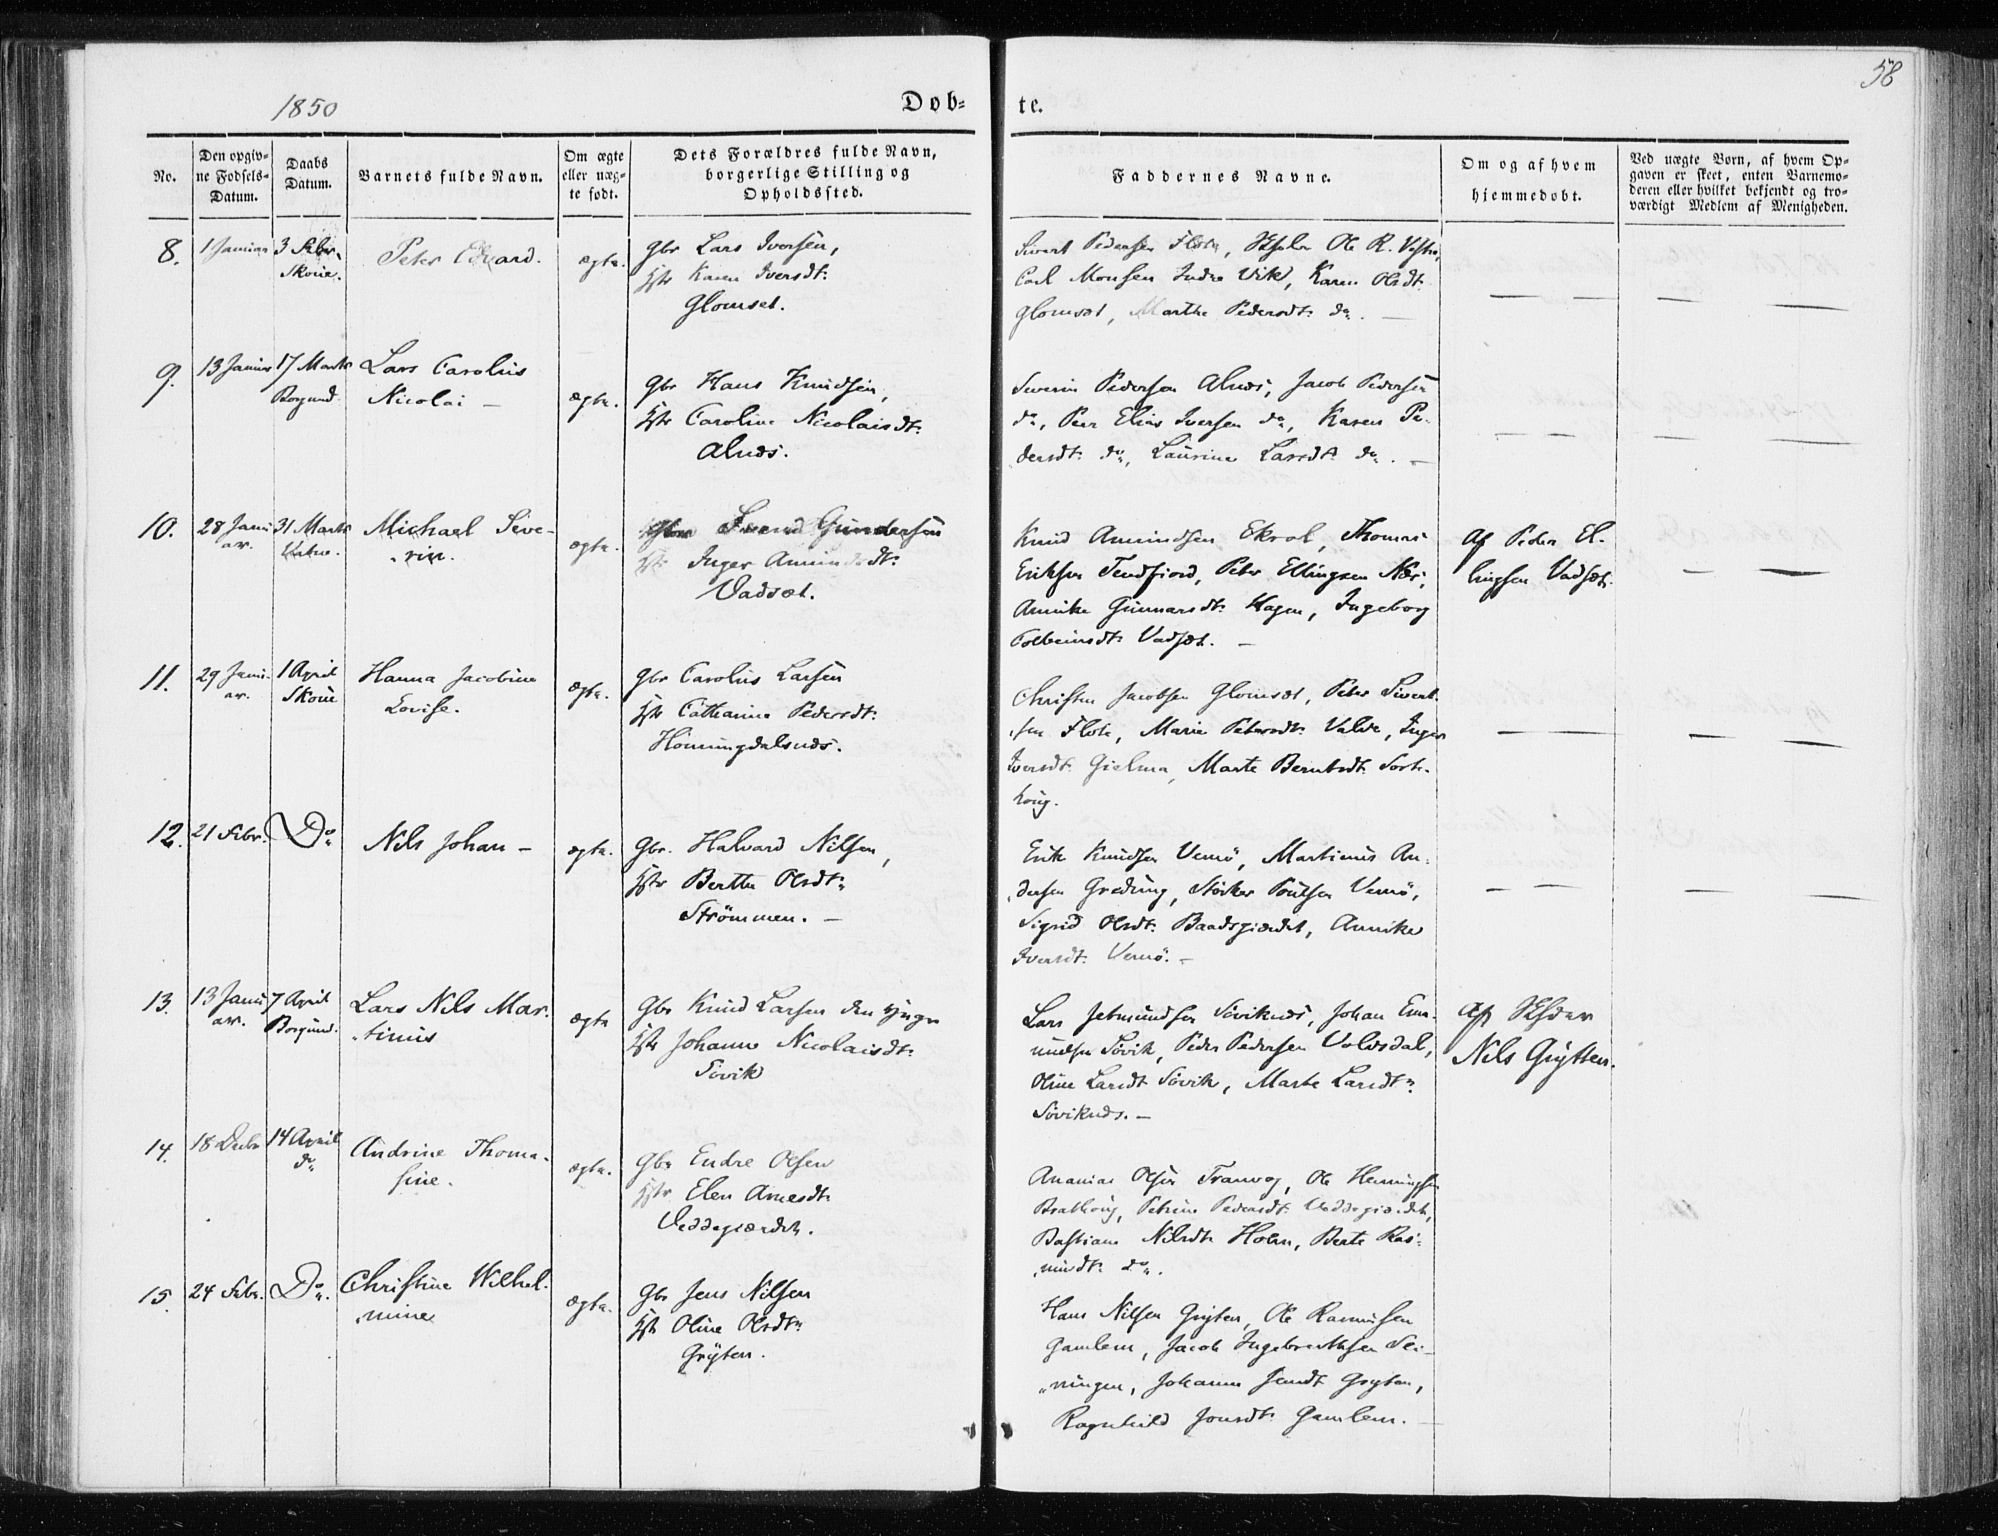 58
1850
Døb-
te.
No.
Den opgiv-
ne Fødsels-
Datum.
Daabs
Datum.
Barnets fulde Navn.
Om ægte
eller uæg-
te født.
Dets Forældres fulde Navn,
borgerlige Stilling og
Opholdssted.
Faddernes Navne.
Om og af hvem
hjemmedøbt.
Ved uægte Børn, af hvem Op-
gaven er skeet, enten Barnemo-
deren eller hvilket bekjendt og tro-
værdigt Medlem af Menigheden.
8.
1 Januar
3 Febr.
Skoue.
Peter Edvard.
ægte.
Gbr Lars Iversen,
Hstr Karen Iversdt:
Glomset.
Sivert Pedersen Flote, Skoler Ole R. Vestre,
Carl Monsen Indre Vik, Karen Olsdt:
Glomset, Marthe Pedersdt: do. —
9.
13 Januar
17 Marts
Borgund.
Lars Carolus
Nicolai —
ægte.
Gbr Hans Knudsen,
Hstr Caroline Nicolaisdt:
Alnæs.
Severin Pedersen Alnæs, Jacob Pedersen
do, Peer Elias Iversen do, Karen Pe-
dersdt: do, Laurine Larsdt: do. —
10.
28 Janu-
ar.
31 Marts
Vatne.
Michael Seve-
rin.
ægte.
Gbr Svend Gundersen
Hstr Inger Amundsdt:
Vadset.
Knud Amundsen Ekrol, Thomas
Eriksen Tendfiord, Peter Ellingsen Nær,
Annike Gunnarsdt: Hagen, Ingeborg
Colbeinsdt: Vadset. —
Af Peder El-
lingsen Vadset.
11.
29 Janu-
ar.
1 April
Skoue
Hanna Jacobine
Lovise.
ægte.
Gbr Carolus Larsen
Hstr Catharina Pedersdt:
Hönningdalsnæs.
Christen Jacobsen Glomset, Peter Sivert-
sen Flote, Marie Petersdt: Valde, Inger
Iversdt: Gielma, Marte Berntsdt: Sort-
houg.
12.
21 Febr.
Do.
Nils Johan —
ægte.
Gbr. Halvard Nilsen,
Hstr Berthe Olsdt:
Strömmen. —
Erik Knudsen Vemö, Martinus An-
dersen Gröding, Störker Poulsen Vemö,
Sigrid Olsdt: Baadsgiærdet, Annike
Iversdt: Vemö. —
13.
13 Janu-
ar.
7 April
Borgund.
Lars Nils Mar-
tinus
ægte
Gbr Knud Larsen den yngre
Hstr Johanne Nicolaisdt:
Sövik
Lars Jetmundsen Söviknæs, Johan
Sövik, Peder Pedersen Valdsdal,
Oline Larsdt Sövik, Marte Larsdt:
Söviknæs. —
Af
Nils Grytten.
14.
18 Decbr
14 April
do
Andrine Thoma-
sine.
ægte.
Gbr Endre Olsen
Hstr Elen Arnesdt:
Veddegiærdet.
Ananias Olsen Tranvog, Ole Henningsen
Brathoug, Petrine Pedersdt: Veddegiærdet,
Bastiane Nilsdt: Holen, Berte Ras-
musdt: do.
15.
24 Febr.
Do.
Christine Wilhel-
mine
ægte.
Gbr Jens Nilsen
Hstr Oline Olsdt:
Gryten.
Hans Nilsen Gryten, Ole Rasmusen
Gamlem, Jacob Ingebrechtsen
Johanne Jensdt Gryten,
Ragnhild Jonsdt: Gamlem. —